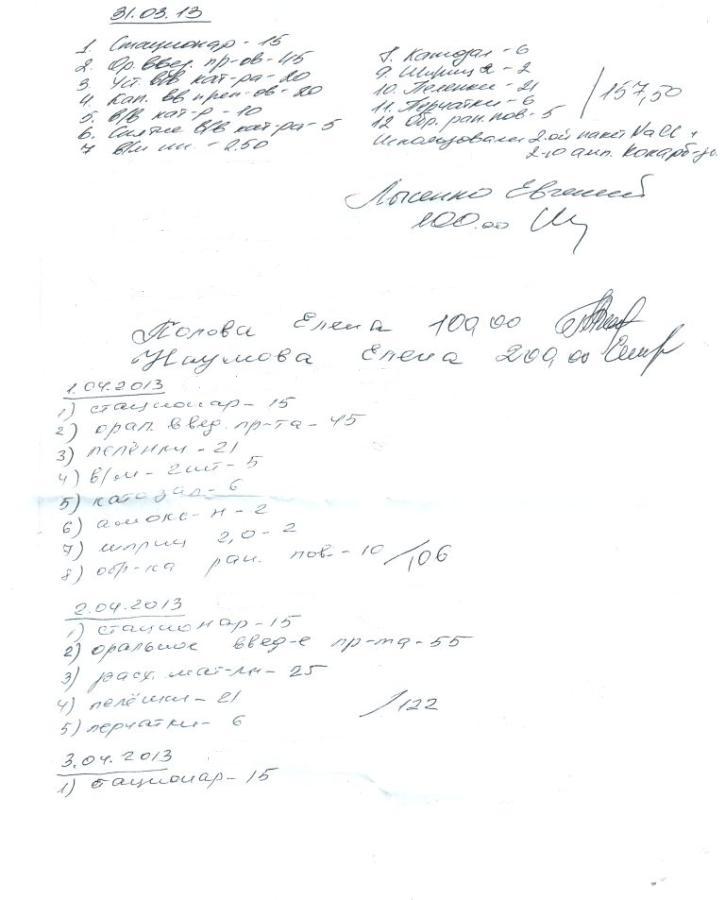 31.03.13
1. Стационар - 15
2. Ор. введ. пр-ов - 45
3. Уст. В/В кат-ра - 20
4. Кап. вв преп-ов - 20
5. В/В кат-р - 10
6. Снятие В/В кат-ра - 5
7. В/м ин. - 2.50
8. Катозал - 6
9. Шприц 2 - 2
10. Пеленки - 21
11. Перчатки - 6
12. Обр. ран. пов. - 5
157,50
Использовали 2-ой пакет NaCl +
2-ю амп. Кокарб-зы.
Лысенко Евгений
100.00
Попова Елена 100,00
Наумова Елена 200,00
1.04.2013
1) стационар - 15
2) орал. введ. пр-та - 45
3) пелёнки - 21
4) в/м - 2шт - 5
5) катозал - 6
6) амокс-н - 2
7) шприц 2,0 - 2
8) обр-ка ран. пов. - 10 /106
2.04.2013
1) стационар - 15
2) оральное введ-е пр-та - 55
3) расх. мат-лы - 25
4) пелёнки - 21
5) перчатки - 6
/122
3.04.2013
1) стационар - 15